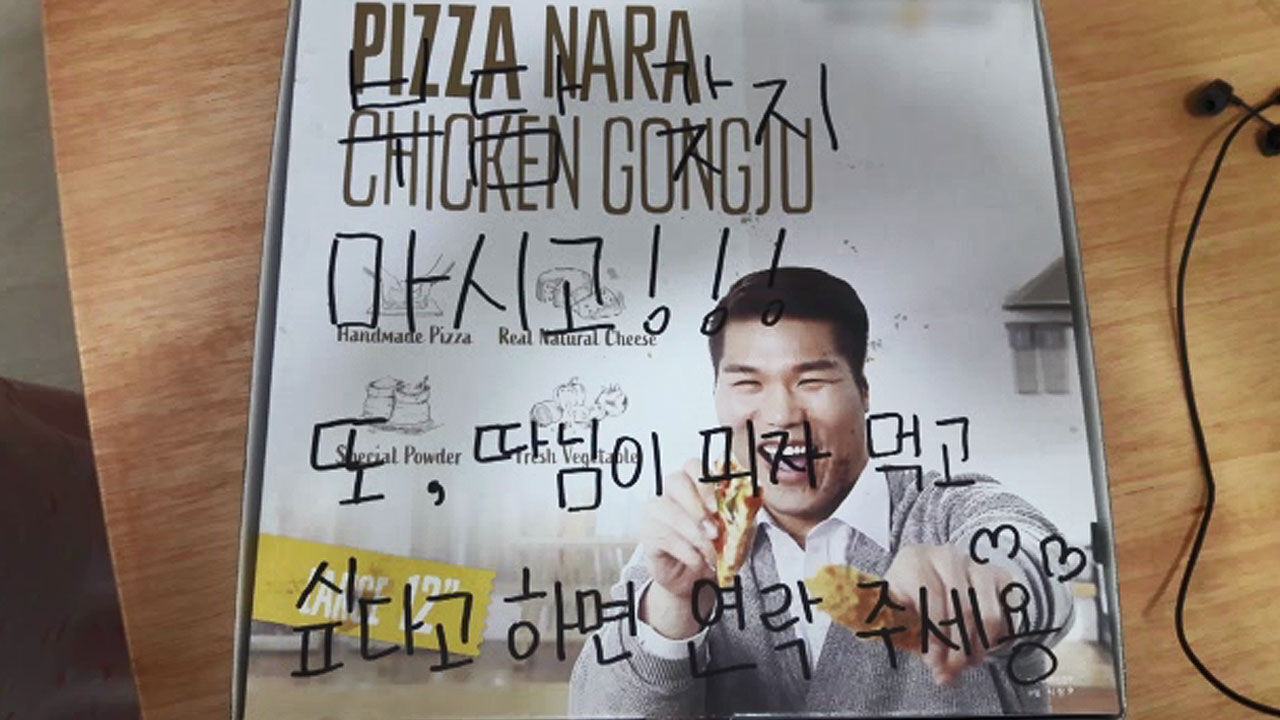 PIZZA NARA
CHICKEN GONGJU
부담 갖지
마시고!!!
Handmade Pizza
Real Natural Cheese
또, 따님이 피자 먹고
Special Powder
Fresh Vegetable
싶다고 하면 연락 주세용
LARGE 12"